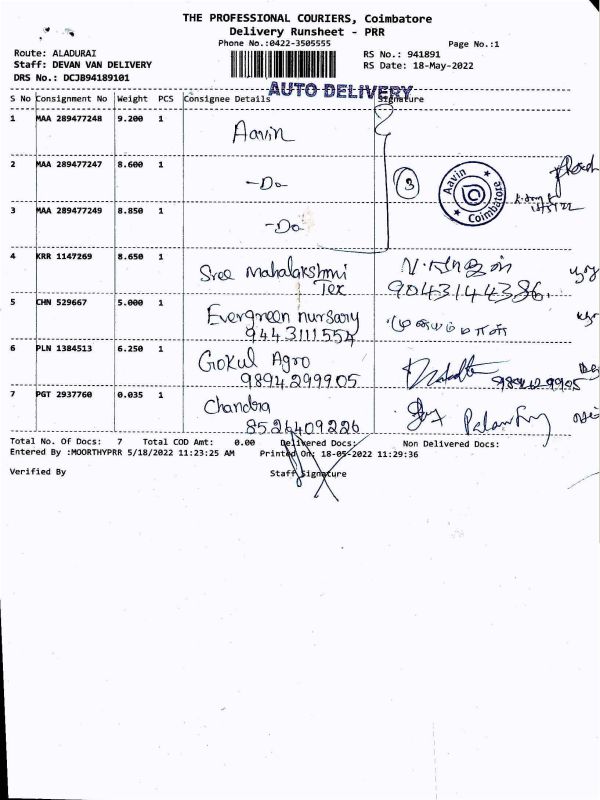 THE PROFESSIONAL COURIERS, Coimbatore
Delivery Runsheet - PRR
Phone No.:0422-3505555
Page No.:1
Route: ALADURAI
RS No.: 941891
Staff: DEVAN VAN DELIVERY
RS Date: 18-May-2022
DRS No.: DCJB94189101
AUTO DELIVERY
S No Consignment No Weight PCS Consignee Details Signature
1 MAA 289477248 9.200 1 Aavin
2 MAA 289477247 8.600 1 -Do- 3
Aavin Coimbatore
3 MAA 289477249 8.850 1 -Do-
4 KRR 1147269 8.650 1 Sree Mahalakshmi
Tex 9043144386.
5 CHN 529667 5.000 1 Evergreen nursary
9443111554
6 PLN 1384513 6.250 1 Gokul Agro
9894299905
7 PGT 2937760 0.035 1 Chandra
8526409226
Total No. Of Docs: 7 Total COD Amt: 0.00 Delivered Docs: Non Delivered Docs:
Entered By :MOORTHYPRR 5/18/2022 11:23:25 AM Printed On: 18-05-2022 11:29:36
Verified By Staff Signature